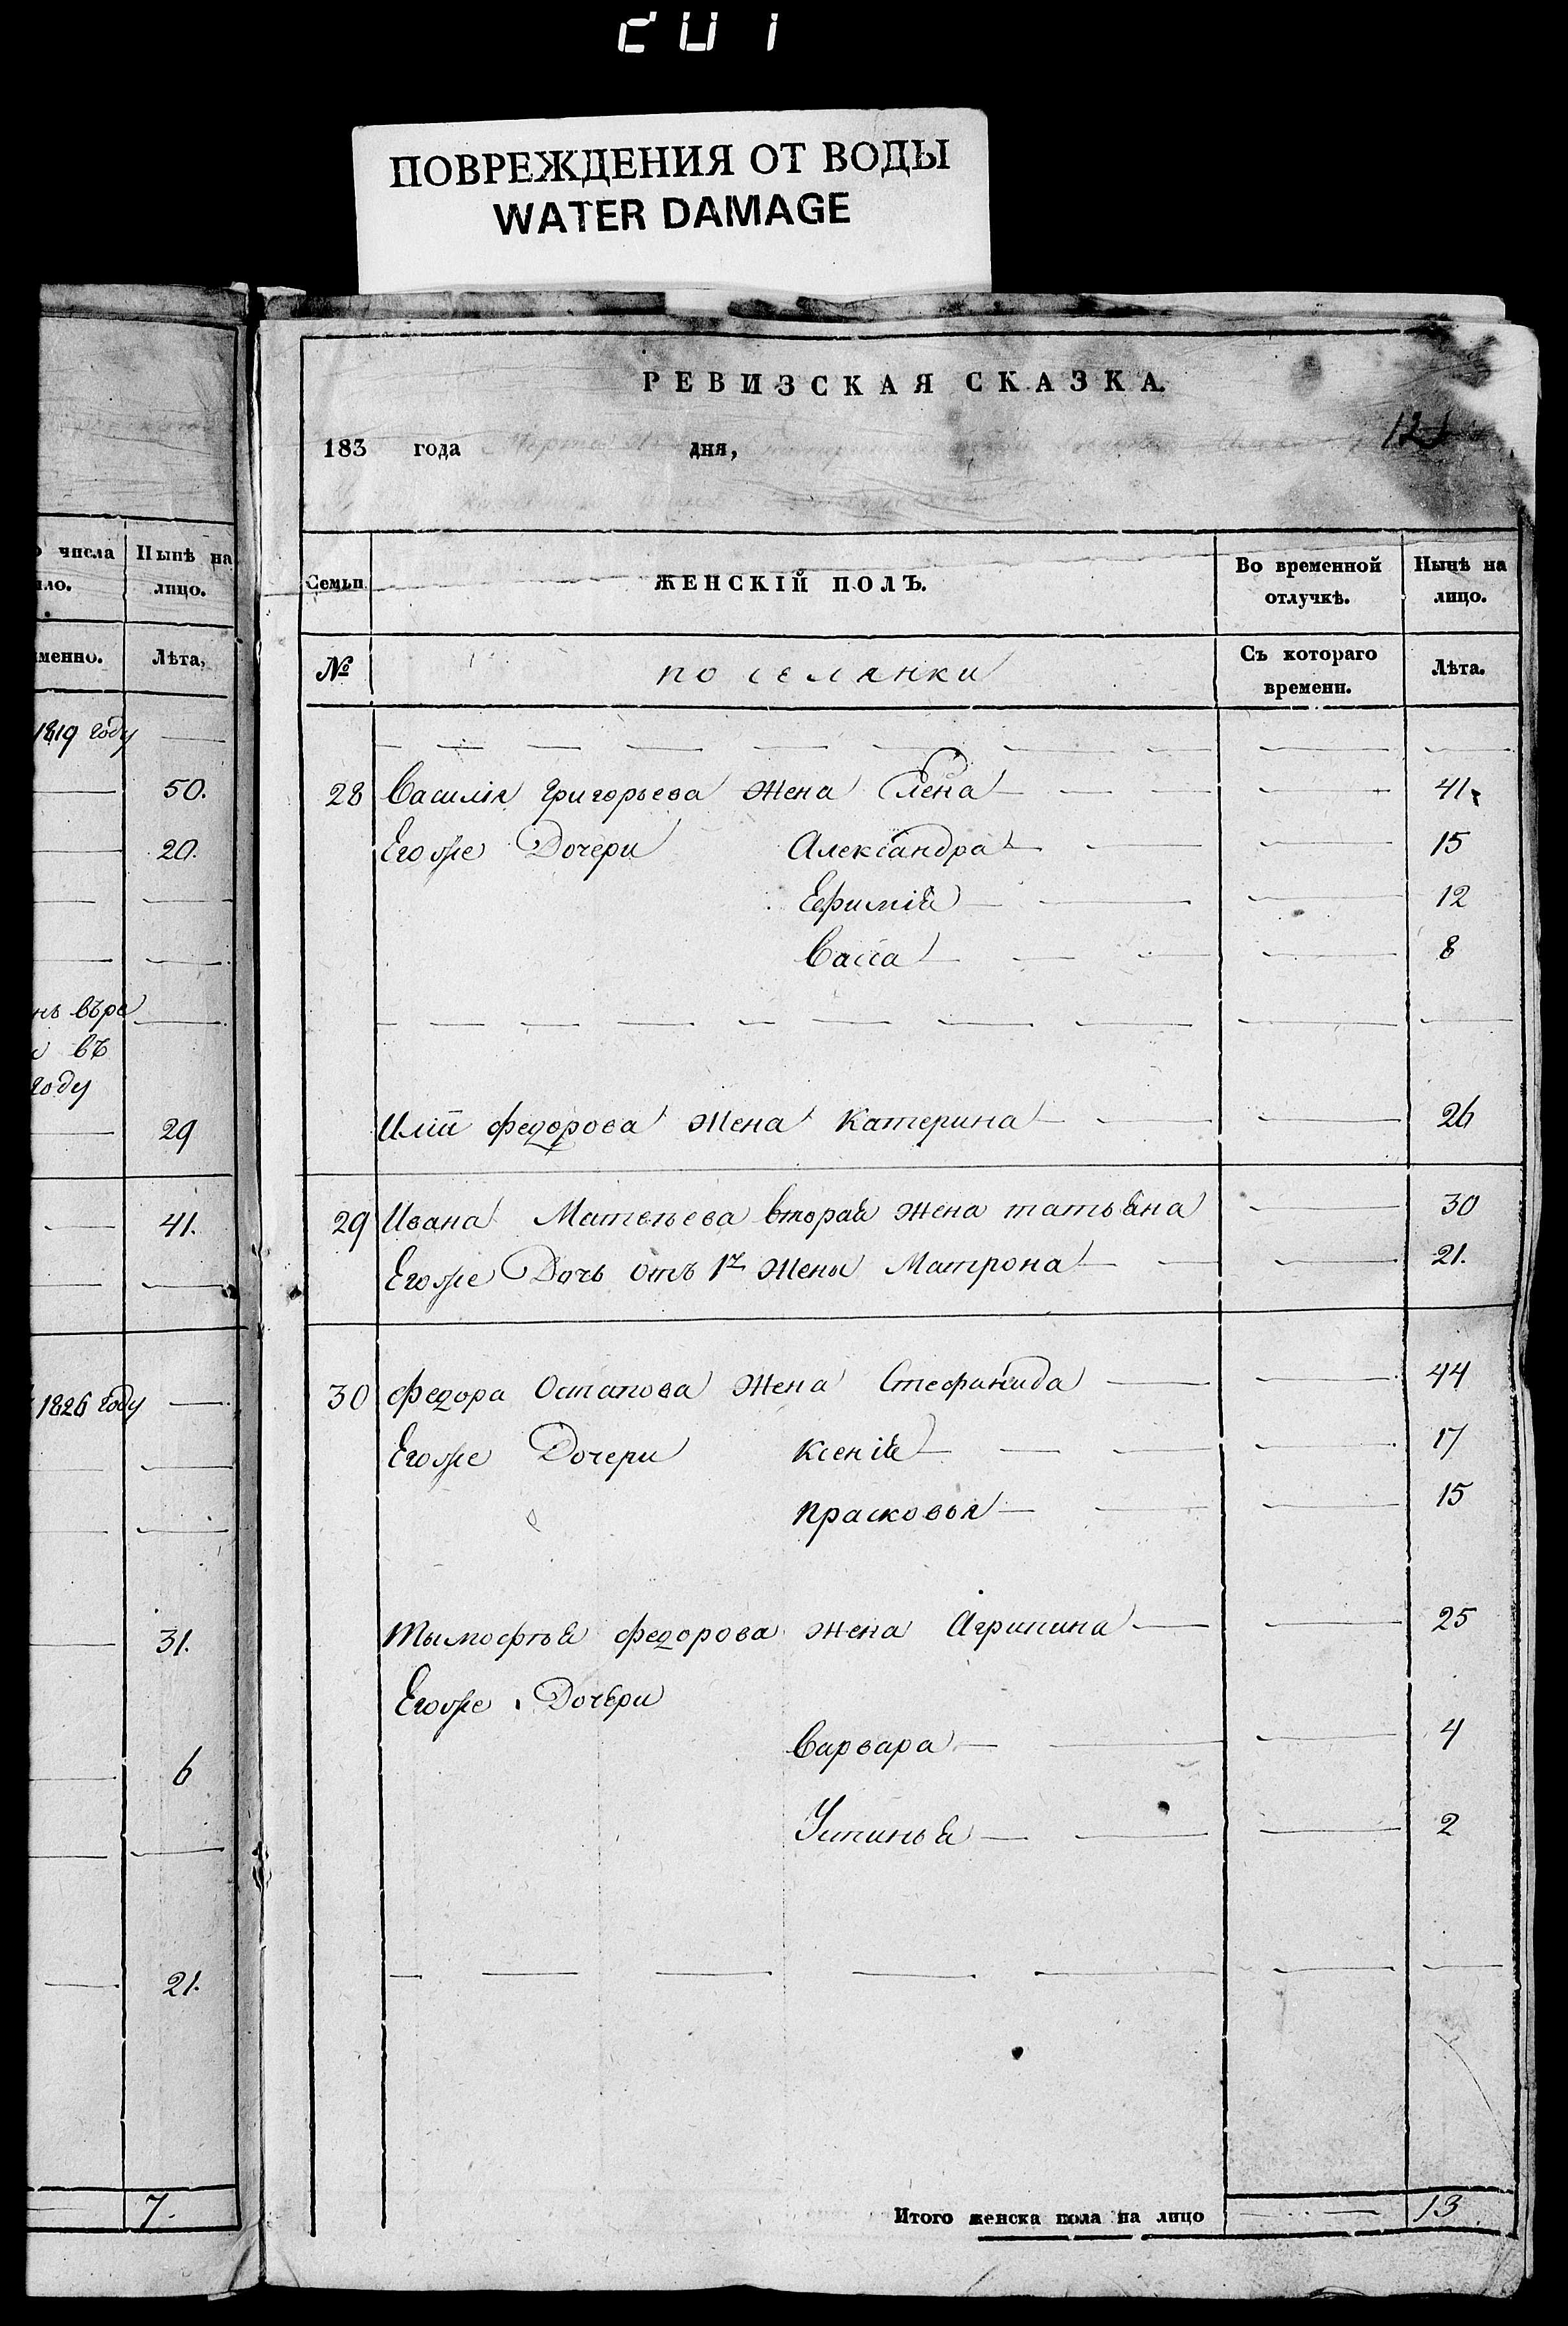 ПОВРЕЖДЕНИЯ ОТ ВОДЫ
WATER DAMAGE
числа
Нынѣ на лицо.
Лѣта,
1819 году
50.
20.
въ
году
29
41.
1826 году
31.
6
21.
7.
РЕВИЗСКАЯ СКАЗКА.
183 года Марта дня,
Семьи
ЖЕНСКІЙ ПОЛЪ.
Во временной отлучкѣ.
Нынѣ на лицо.
№
поселянки
Съ котораго времени.
Лѣта.
28 Василія Григорьева жена Елена 41
Егоже Дочери Александра 15
Ефимія 12
Васса 8
Иліи федорова жена Катерина 26
29 Ивана Матвѣева вторая жена татьяна 30
Егоже Дочь отъ 1й жены Матрона 21.
30 федора Остапова жена Стефанида 44
Егоже Дочери Ксенія 17
прасковья 15
Тымофѣя федорова жена Агрипина 25
Егоже Дочери
Варвара 4
Устинья 2
Итого женска пола на лицо 13